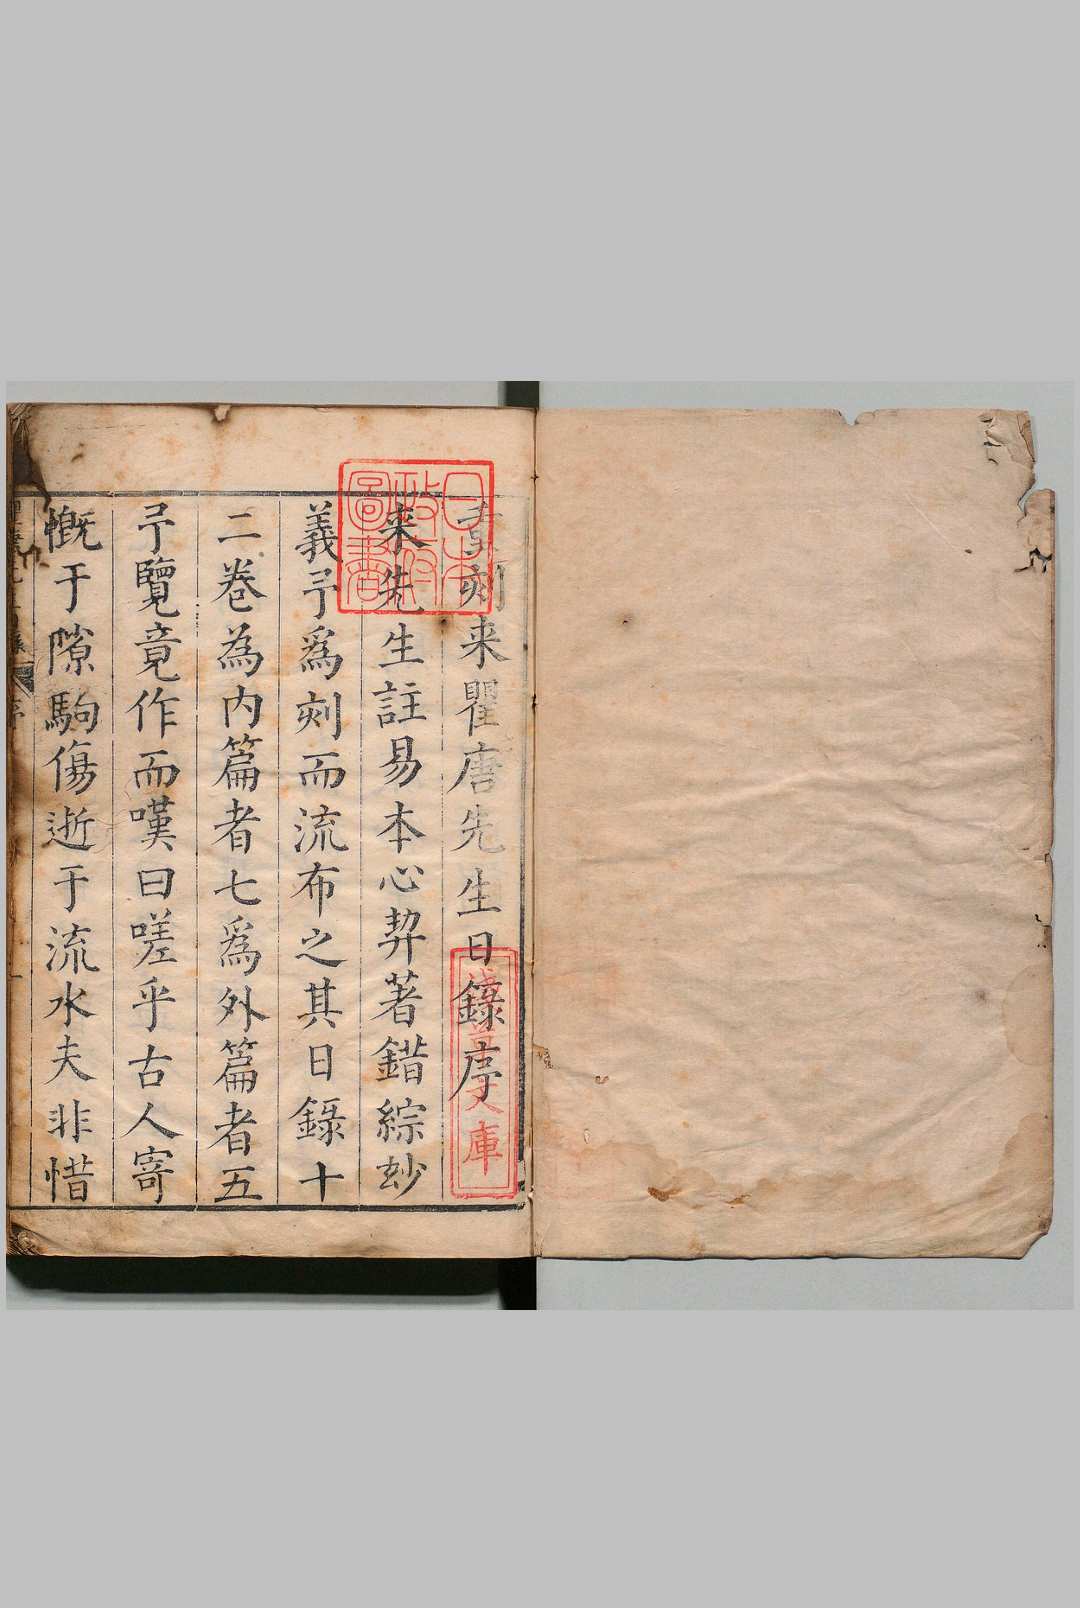 重刻来瞿唐先生日錄序
来先生註易本心契著錯綜玅
義予爲刻而流布之其日錄十
二卷為内篇者七爲外篇者五
予覽竟作而嘆曰嗟乎古人寄
慨于隙駒傷逝于流水夫非惜
日本
政府
圖書
淺草文庫